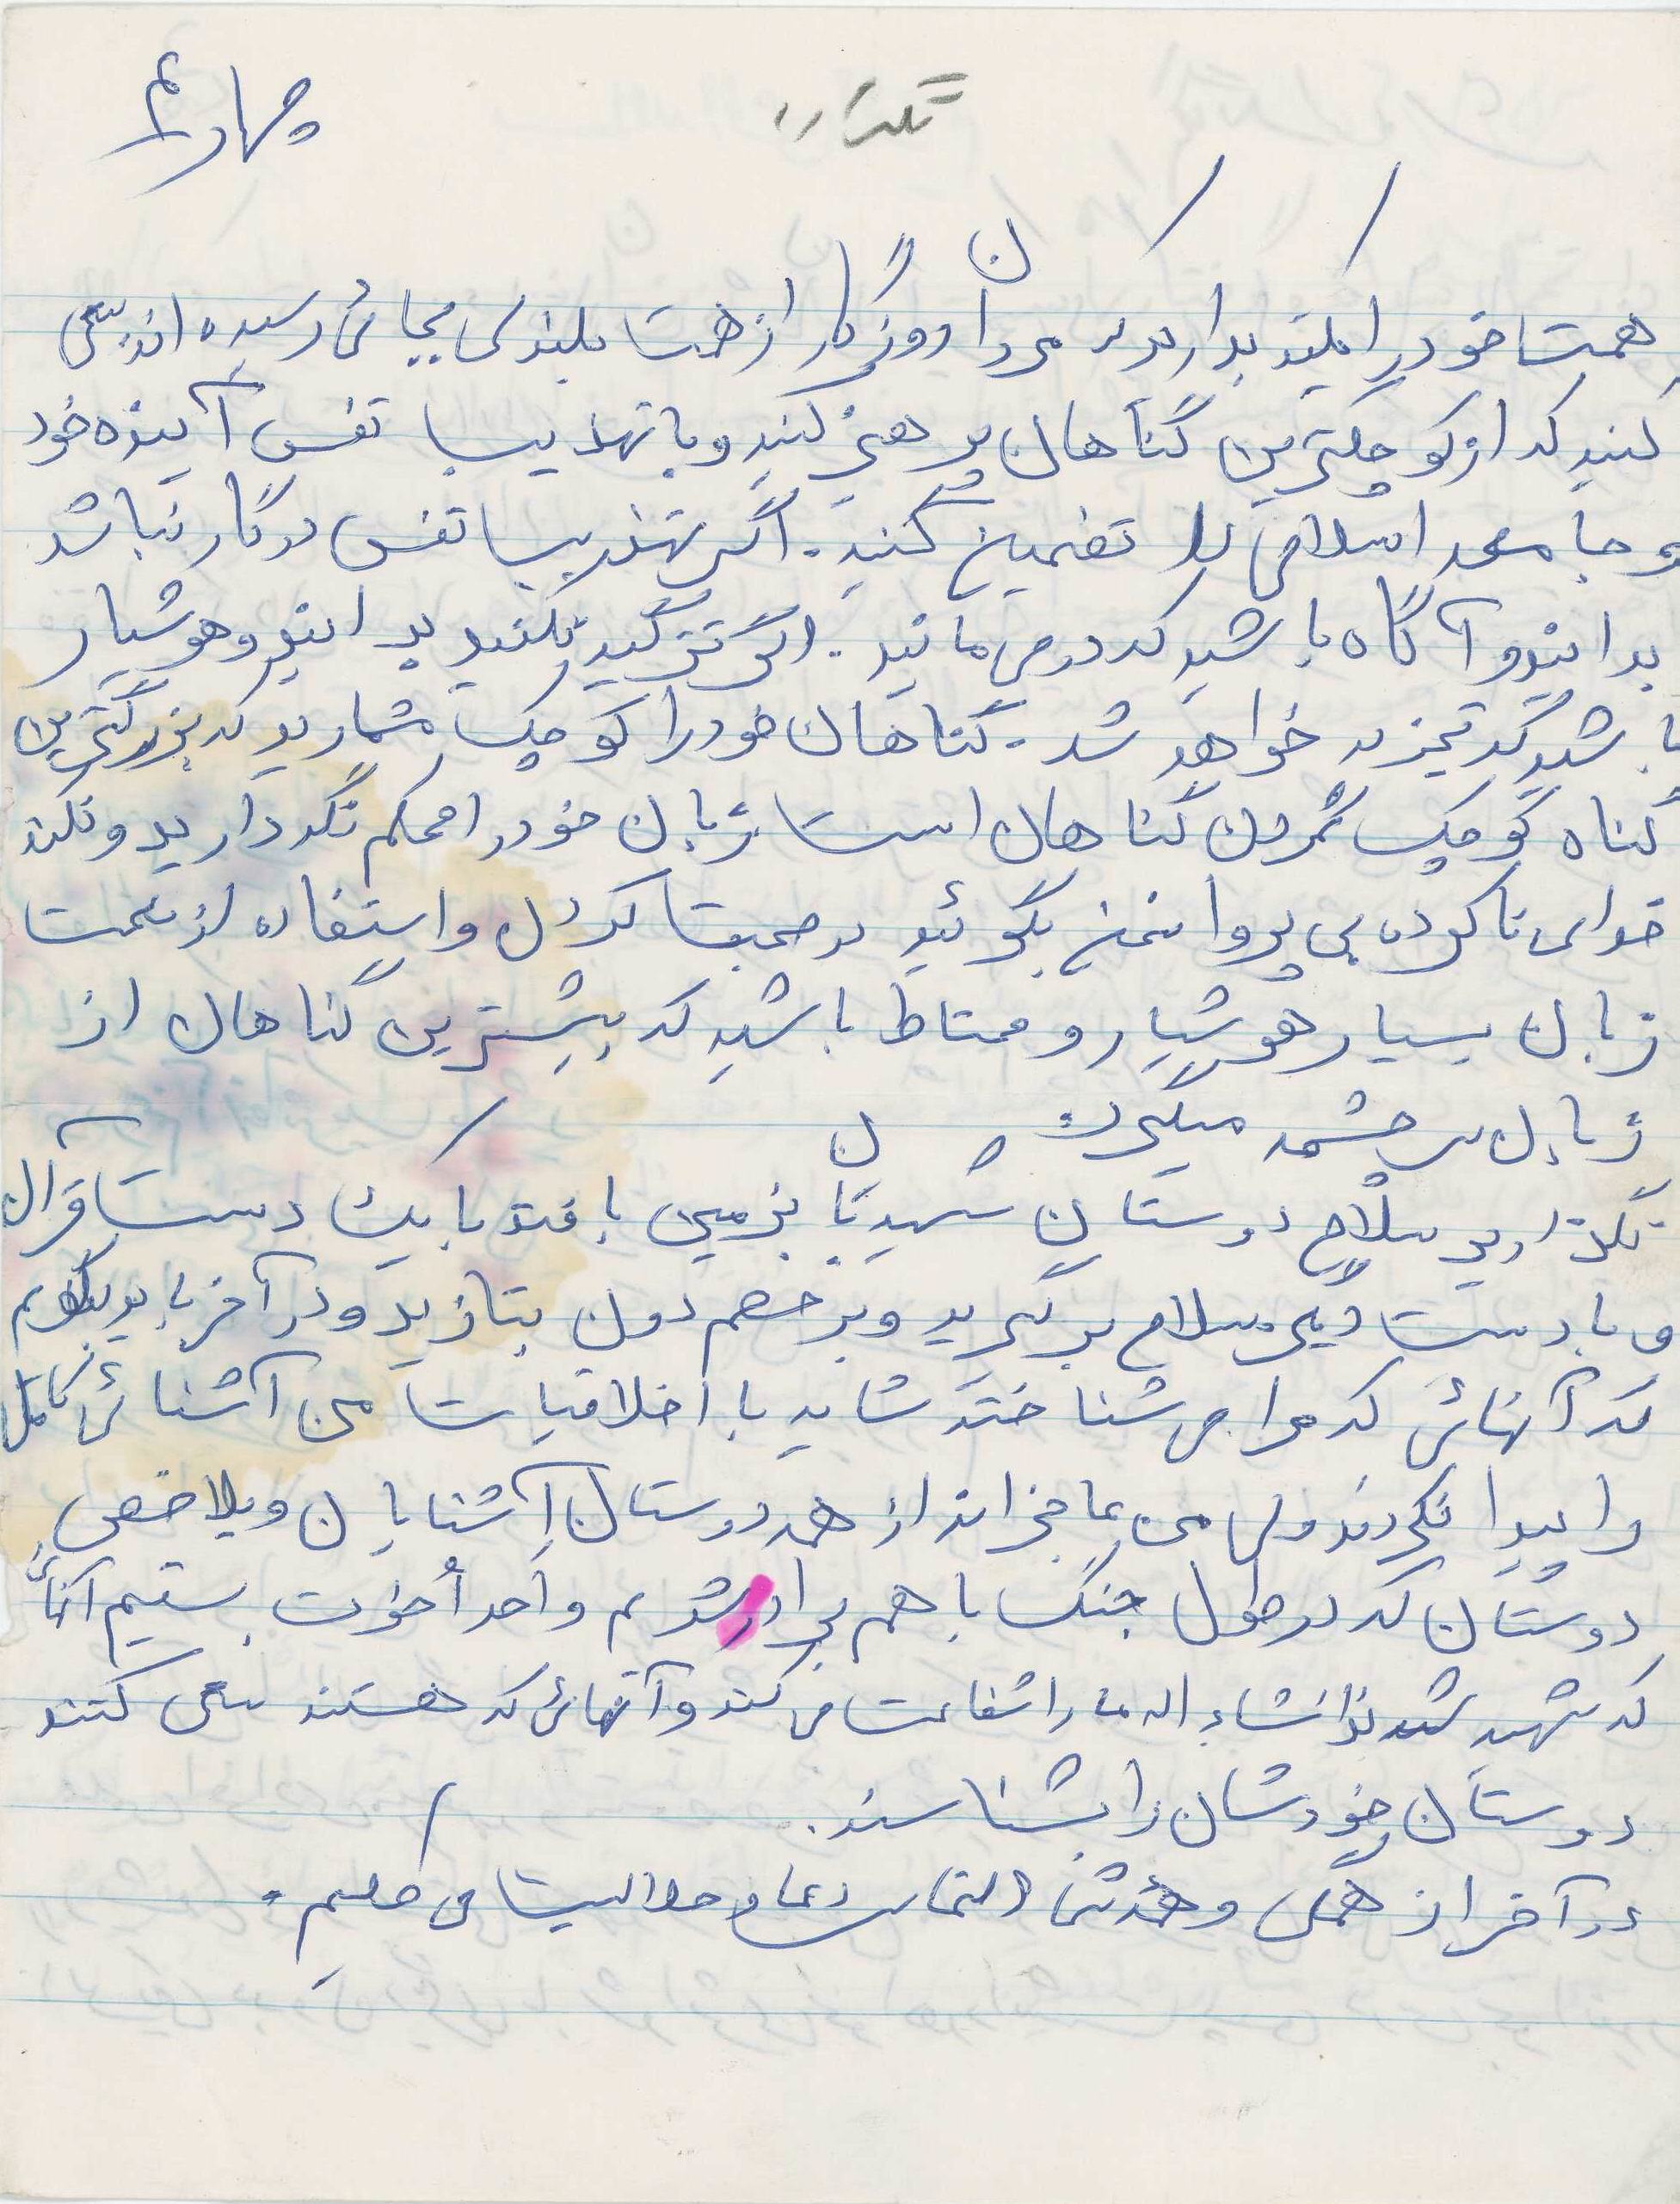 تکرار
چهارم
همت خود را بلند بدارید که مردان روزگار از همت بلندی بجائی رسیده اند سعی
کنید که از کوچکترین گناهان پرهیز کنید و با تهذیب نفس آینده خود
و جامعه اسلامی را تضمین کنید. اگر تهذیب نفس در کار نباشد
بدانید و آگاه باشید که در می مانید. اگر تزکیه نکنید بدانید و هوشیار
باشید که تجزیه خواهید شد. گناهان خود را کوچک مشمارید که بزرگترین
گناه کوچک شمردن گناهان است زبان خود را محکم نگه دارید و نکند
خدای ناکرده بی پروا سخن بگوئید در صحبت کردن و استفاده از نعمت
زبان بسیار هوشیار و محتاط باشید که بیشترین گناهان از
زبان سرچشمه میگیرد
نگذارید سلاح دوستان شهیدتان بزمین بافتد با یک دست قرآن
و با دست دیگر سلاح برگیرید و بر خصم دون بتازید و در آخر باید بگویم
که آنهائی که مرا می شناختند شاید با اخلاقیات من آشنائی کامل
را پیدا نکردند ولی من عاجزانه از همه دوستان آشنایان و بلاخص
دوستان که در طول جنگ با هم برادر شدیم و احد أخوت بستیم آنان
که شهید شدند انشاء اله ما را شفاعت می کنند و آنهائی که هستند سعی کنند
دوستان خودشان را بشناسند.
در آخر از همگی التماس دعا و حلالیت می طلبم.